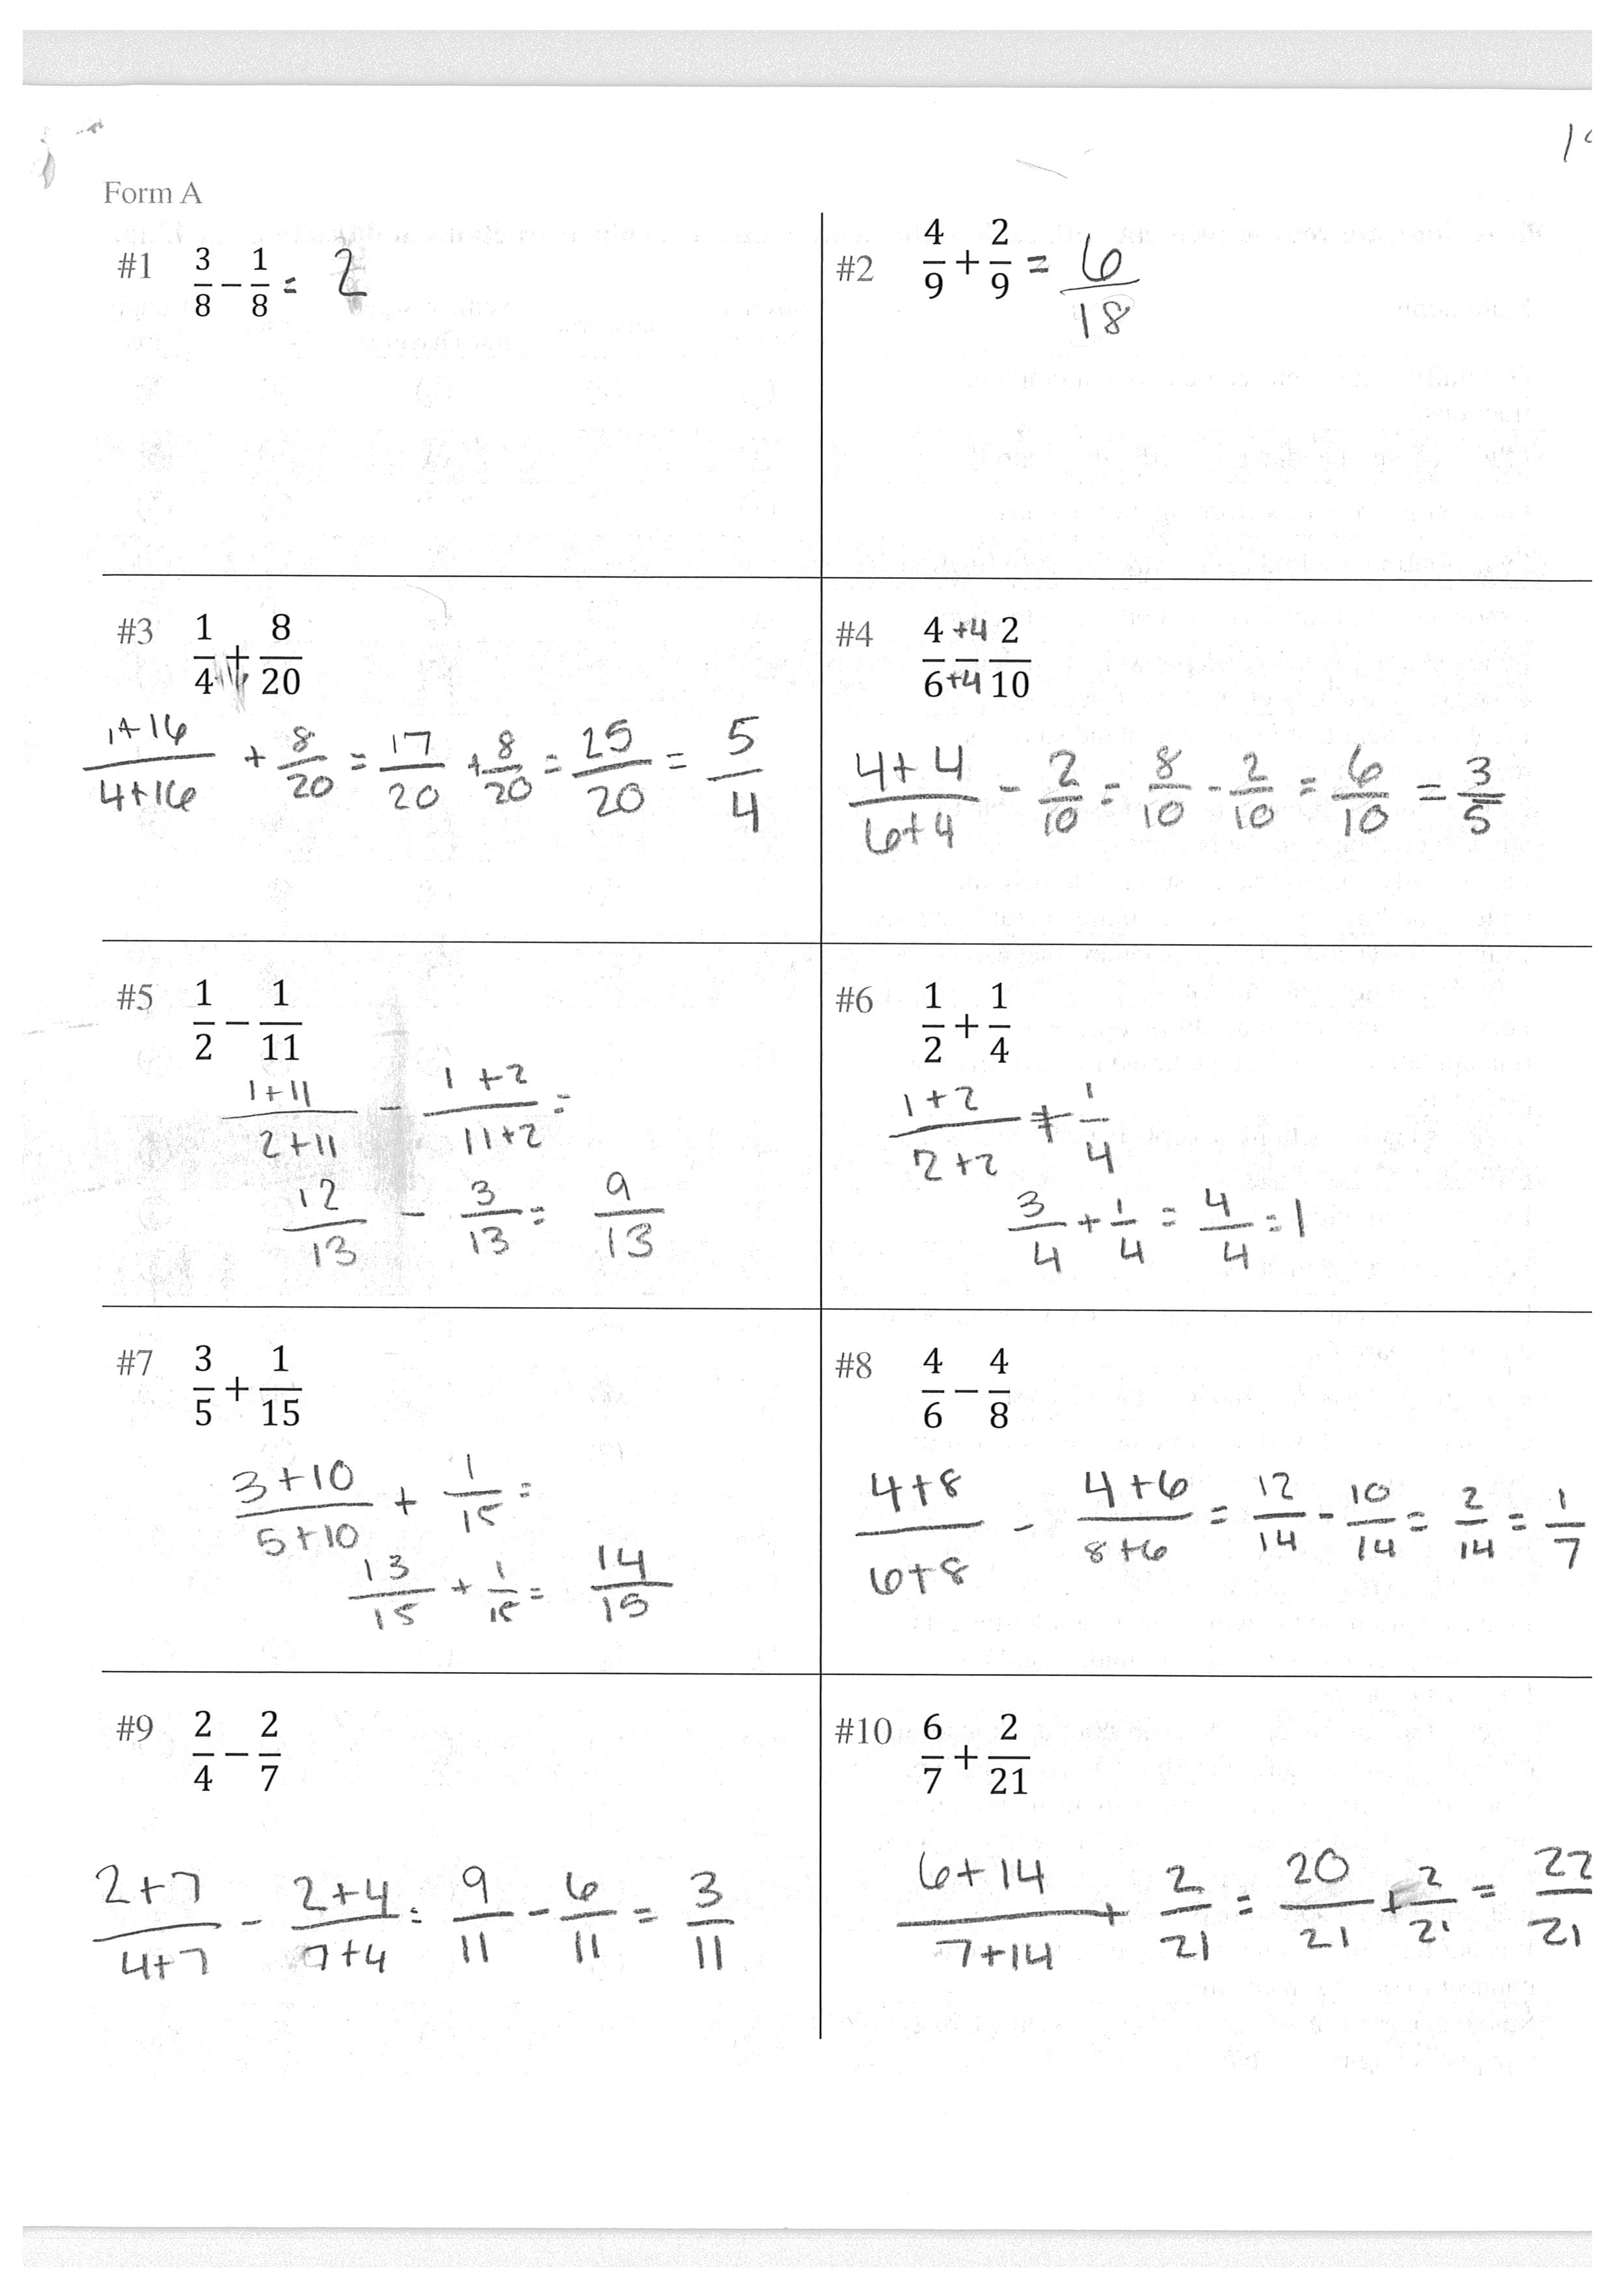 Form A
#1 3/8 - 1/8 = 2
#2 4/9 + 2/9 = 6/18
#3 1/4 + 8/20
1+16/4+16 + 8/20 = 17/20 + 8/20 = 25/20 = 5/4
#4 4/6 +4/+4 - 2/10
4+4/6+4 - 2/10 = 8/10 - 2/10 = 6/10 = 3/5
#5 1/2 - 1/11
1+11/2+11 - 1+2/11+2 =
12/13 - 3/13 = 9/13
#6 1/2 + 1/4
1+2/2+2 + 1/4
3/4 + 1/4 = 4/4 = 1
#7 3/5 + 1/15
3+10/5+10 + 1/15 =
13/15 + 1/15 = 14/15
#8 4/6 - 4/8
4+8/6+8 - 4+6/8+6 = 12/14 - 10/14 = 2/14 = 1/7
#9 2/4 - 2/7
2+7/4+7 - 2+4/7+4 = 9/11 - 6/11 = 3/11
#10 6/7 + 2/21
6+14/7+14 + 2/21 = 20/21 + 2/21 = 22/21